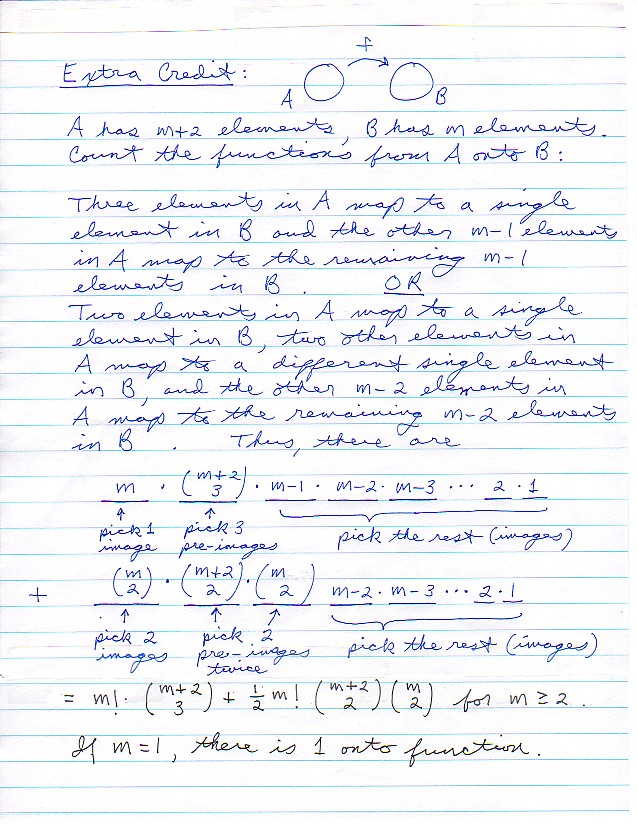 f
Extra Credit:
A B
A has m+2 elements, B has m elements.
Count the functions from A onto B:
Three elements in A map to a single
element in B and the other m-1 elements
in A map to the remaining m-1
elements in B. OR
Two elements in A map to a single
element in B, two other elements in
A map to a different single element
in B, and the other m-2 elements in
A map to the remaining m-2 elements
in B. Thus, there are
m · (m+2 3) · m-1 · m-2 · m-3 ··· 2 · 1
↑ ↑
pick 1 pick 3 pick the rest (images)
image pre-images
+ (m 2) · (m+2 2) · (m 2) m-2 · m-3 ··· 2 · 1
↑ ↑ ↑
pick 2 pick 2 pick the rest (images)
images pre-images
twice
= m! · (m+2 3) + 1/2 m! (m+2 2) (m 2) for m ≥ 2.
If m=1, there is 1 onto function.